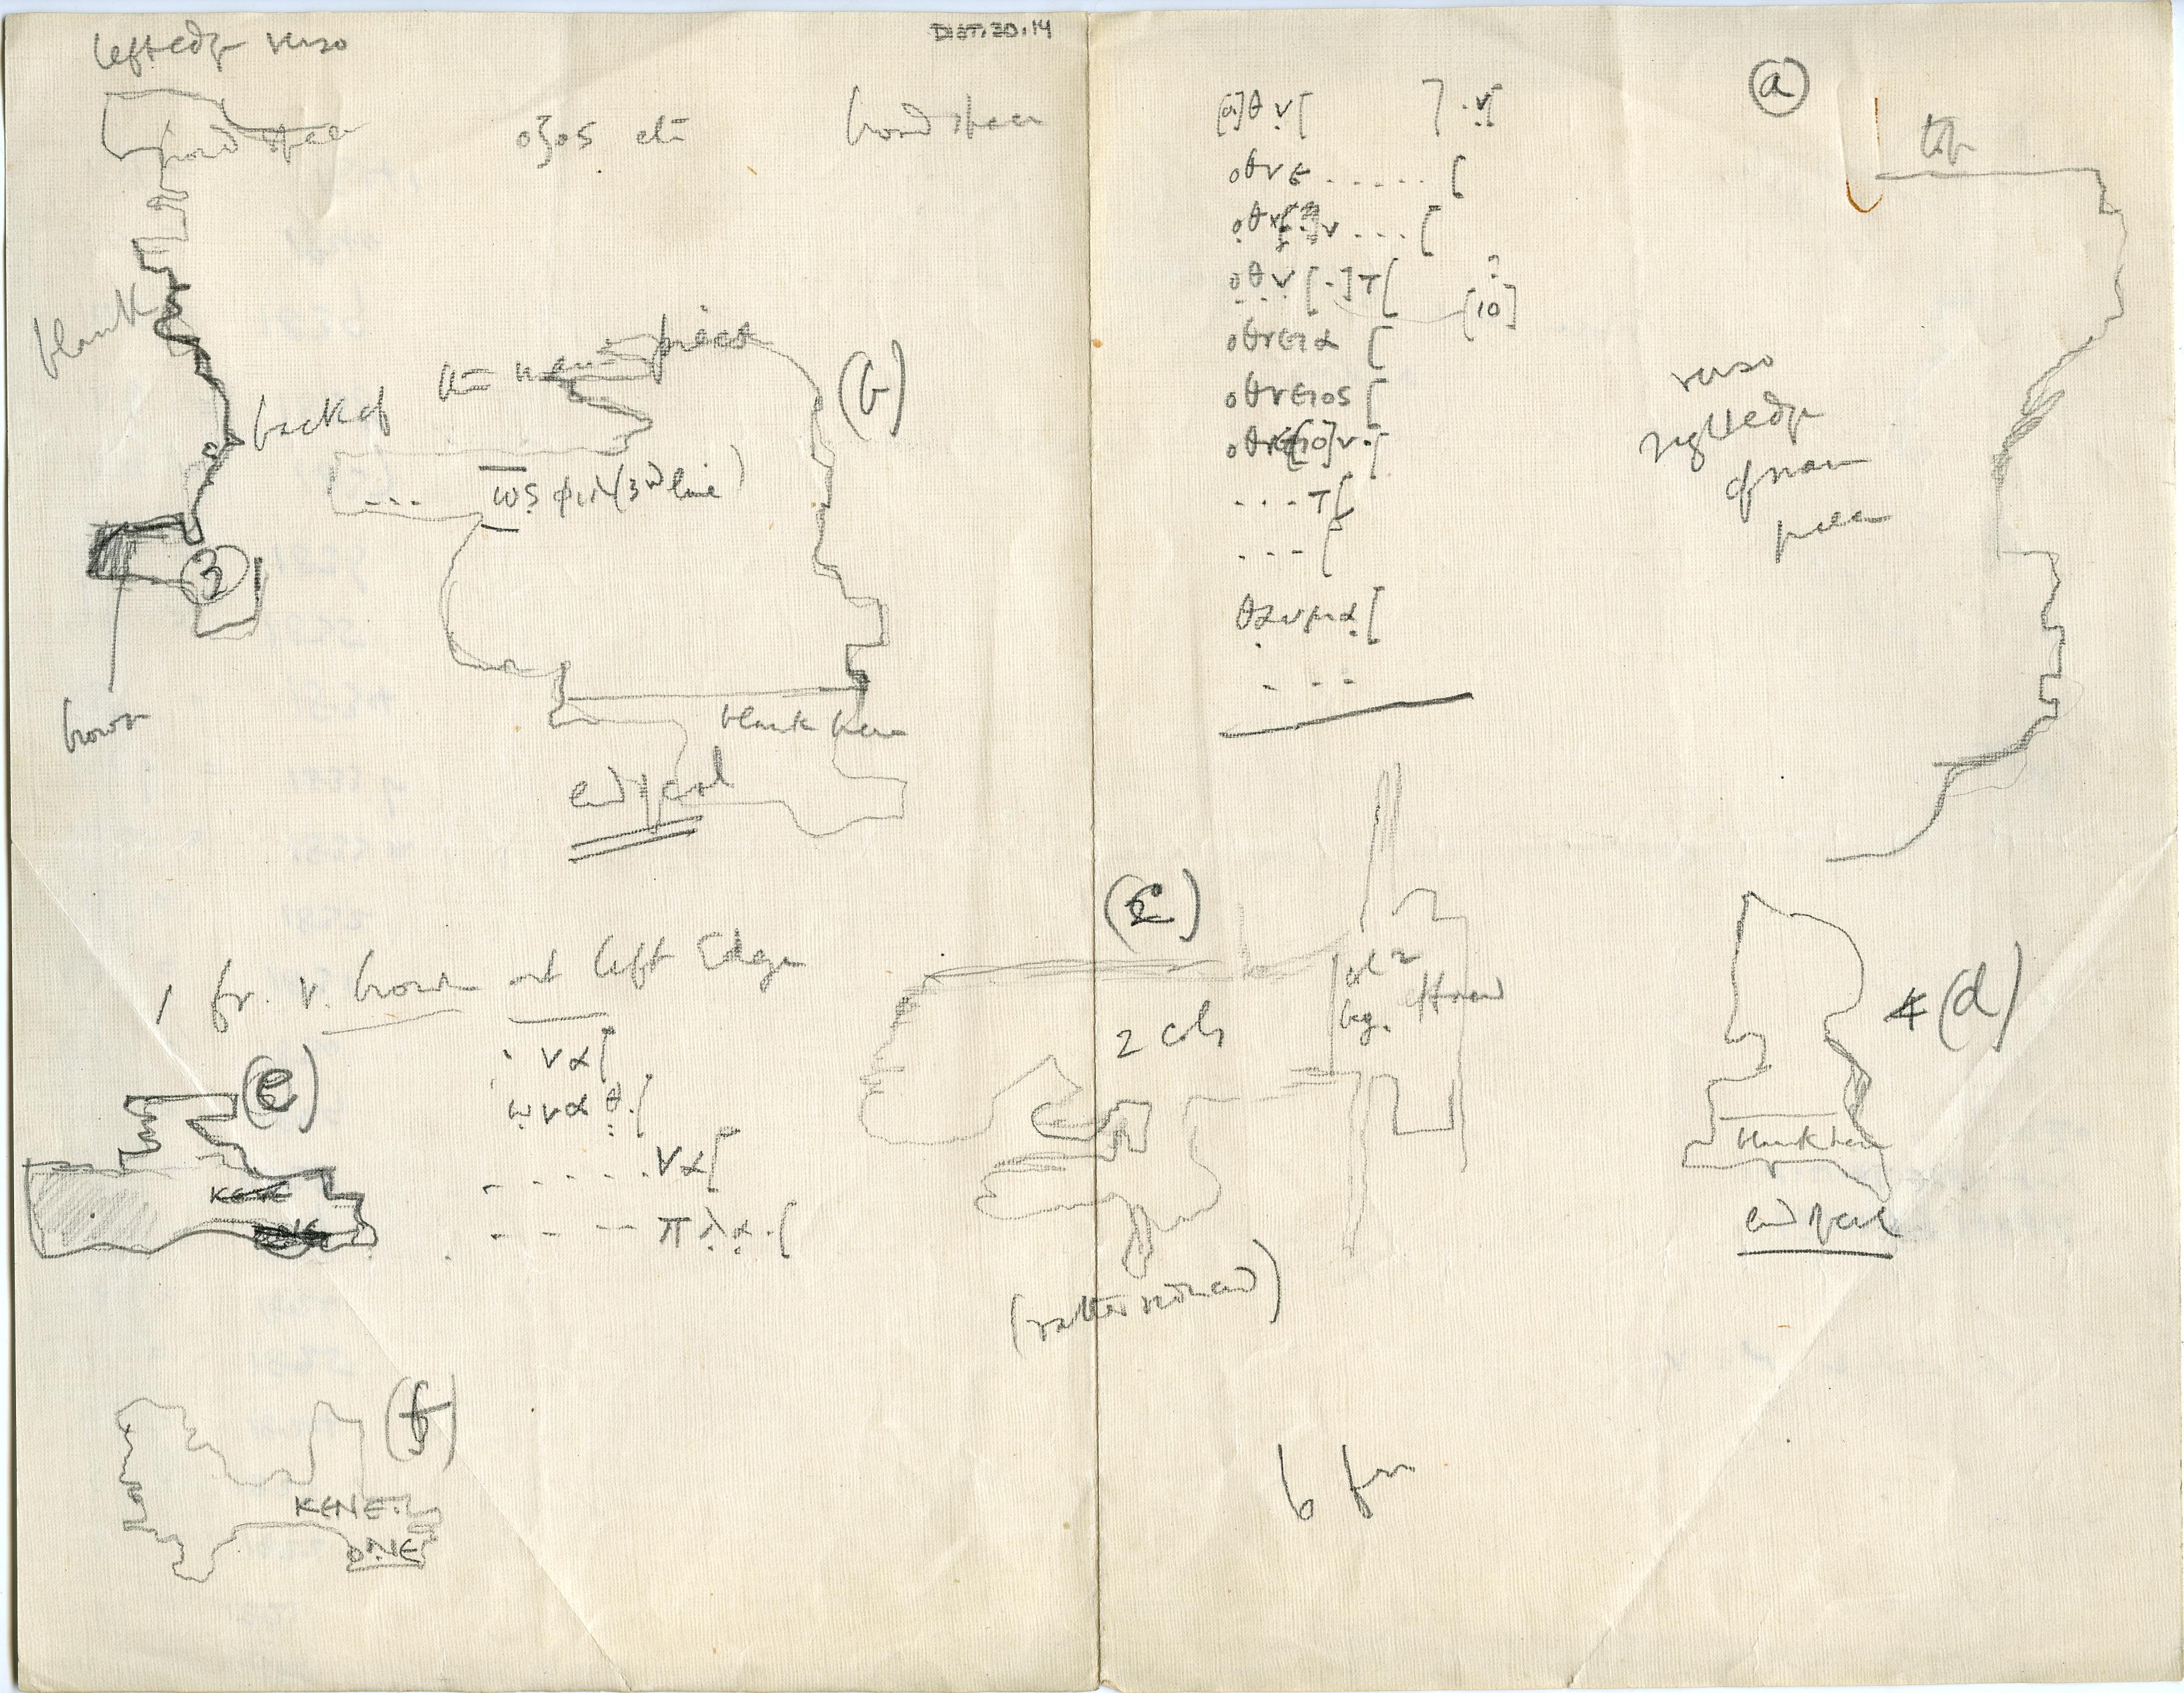 left edge verso
DIST.20.14
broad space
οζος etc
broad space
blank
back of
a = main piece
(b)
... ως φιλ (3rd line)
3
brown
blank here
end of col
1 fr. v. brown at left Edge
(e)
. να[
ωναθ.[
. . . . . να[
. . - - - πλα.[
(f)
ΚΕΝΕ.
ΟΝΕ
(a)
top
[ο]θν[ ] .ν[
οθνε . . . . . [
οθν[ ]ν . . . [
οθν[.]τ[
[10]
οθνεια [
οθνειος [
οθνε[ιο]ν.[
. . . τ[
. . . [
θαυμα[
. . .
verso
right edge
of main
piece
(c)
2 cols
col 2
beg.
4 (d)
blank here
end of col
6 frr